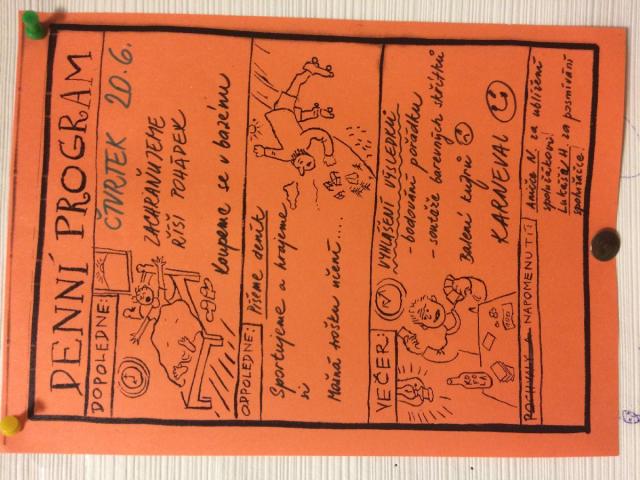 DENNÍ PROGRAM
DOPOLEDNE:
ČTVRTEK 20.6.
ZACHRAŇUJEME
ŘÍŠI POHÁDEK
Koupeme se v bazénu
ODPOLEDNE:
Píšeme deník
Sportujeme a hrajeme
si
Možná trošku učení....
VEČER:
VYHLÁŠENÍ VÝSLEDKŮ
- bodování pořádku
- soutěže barevných skřítků
Balení kufrů
KARNEVAL
POCHVALY NAPOMENUTÍ:
N. za ublížení
spolužákovi
Lukáš H. za posmívání
spolužáce